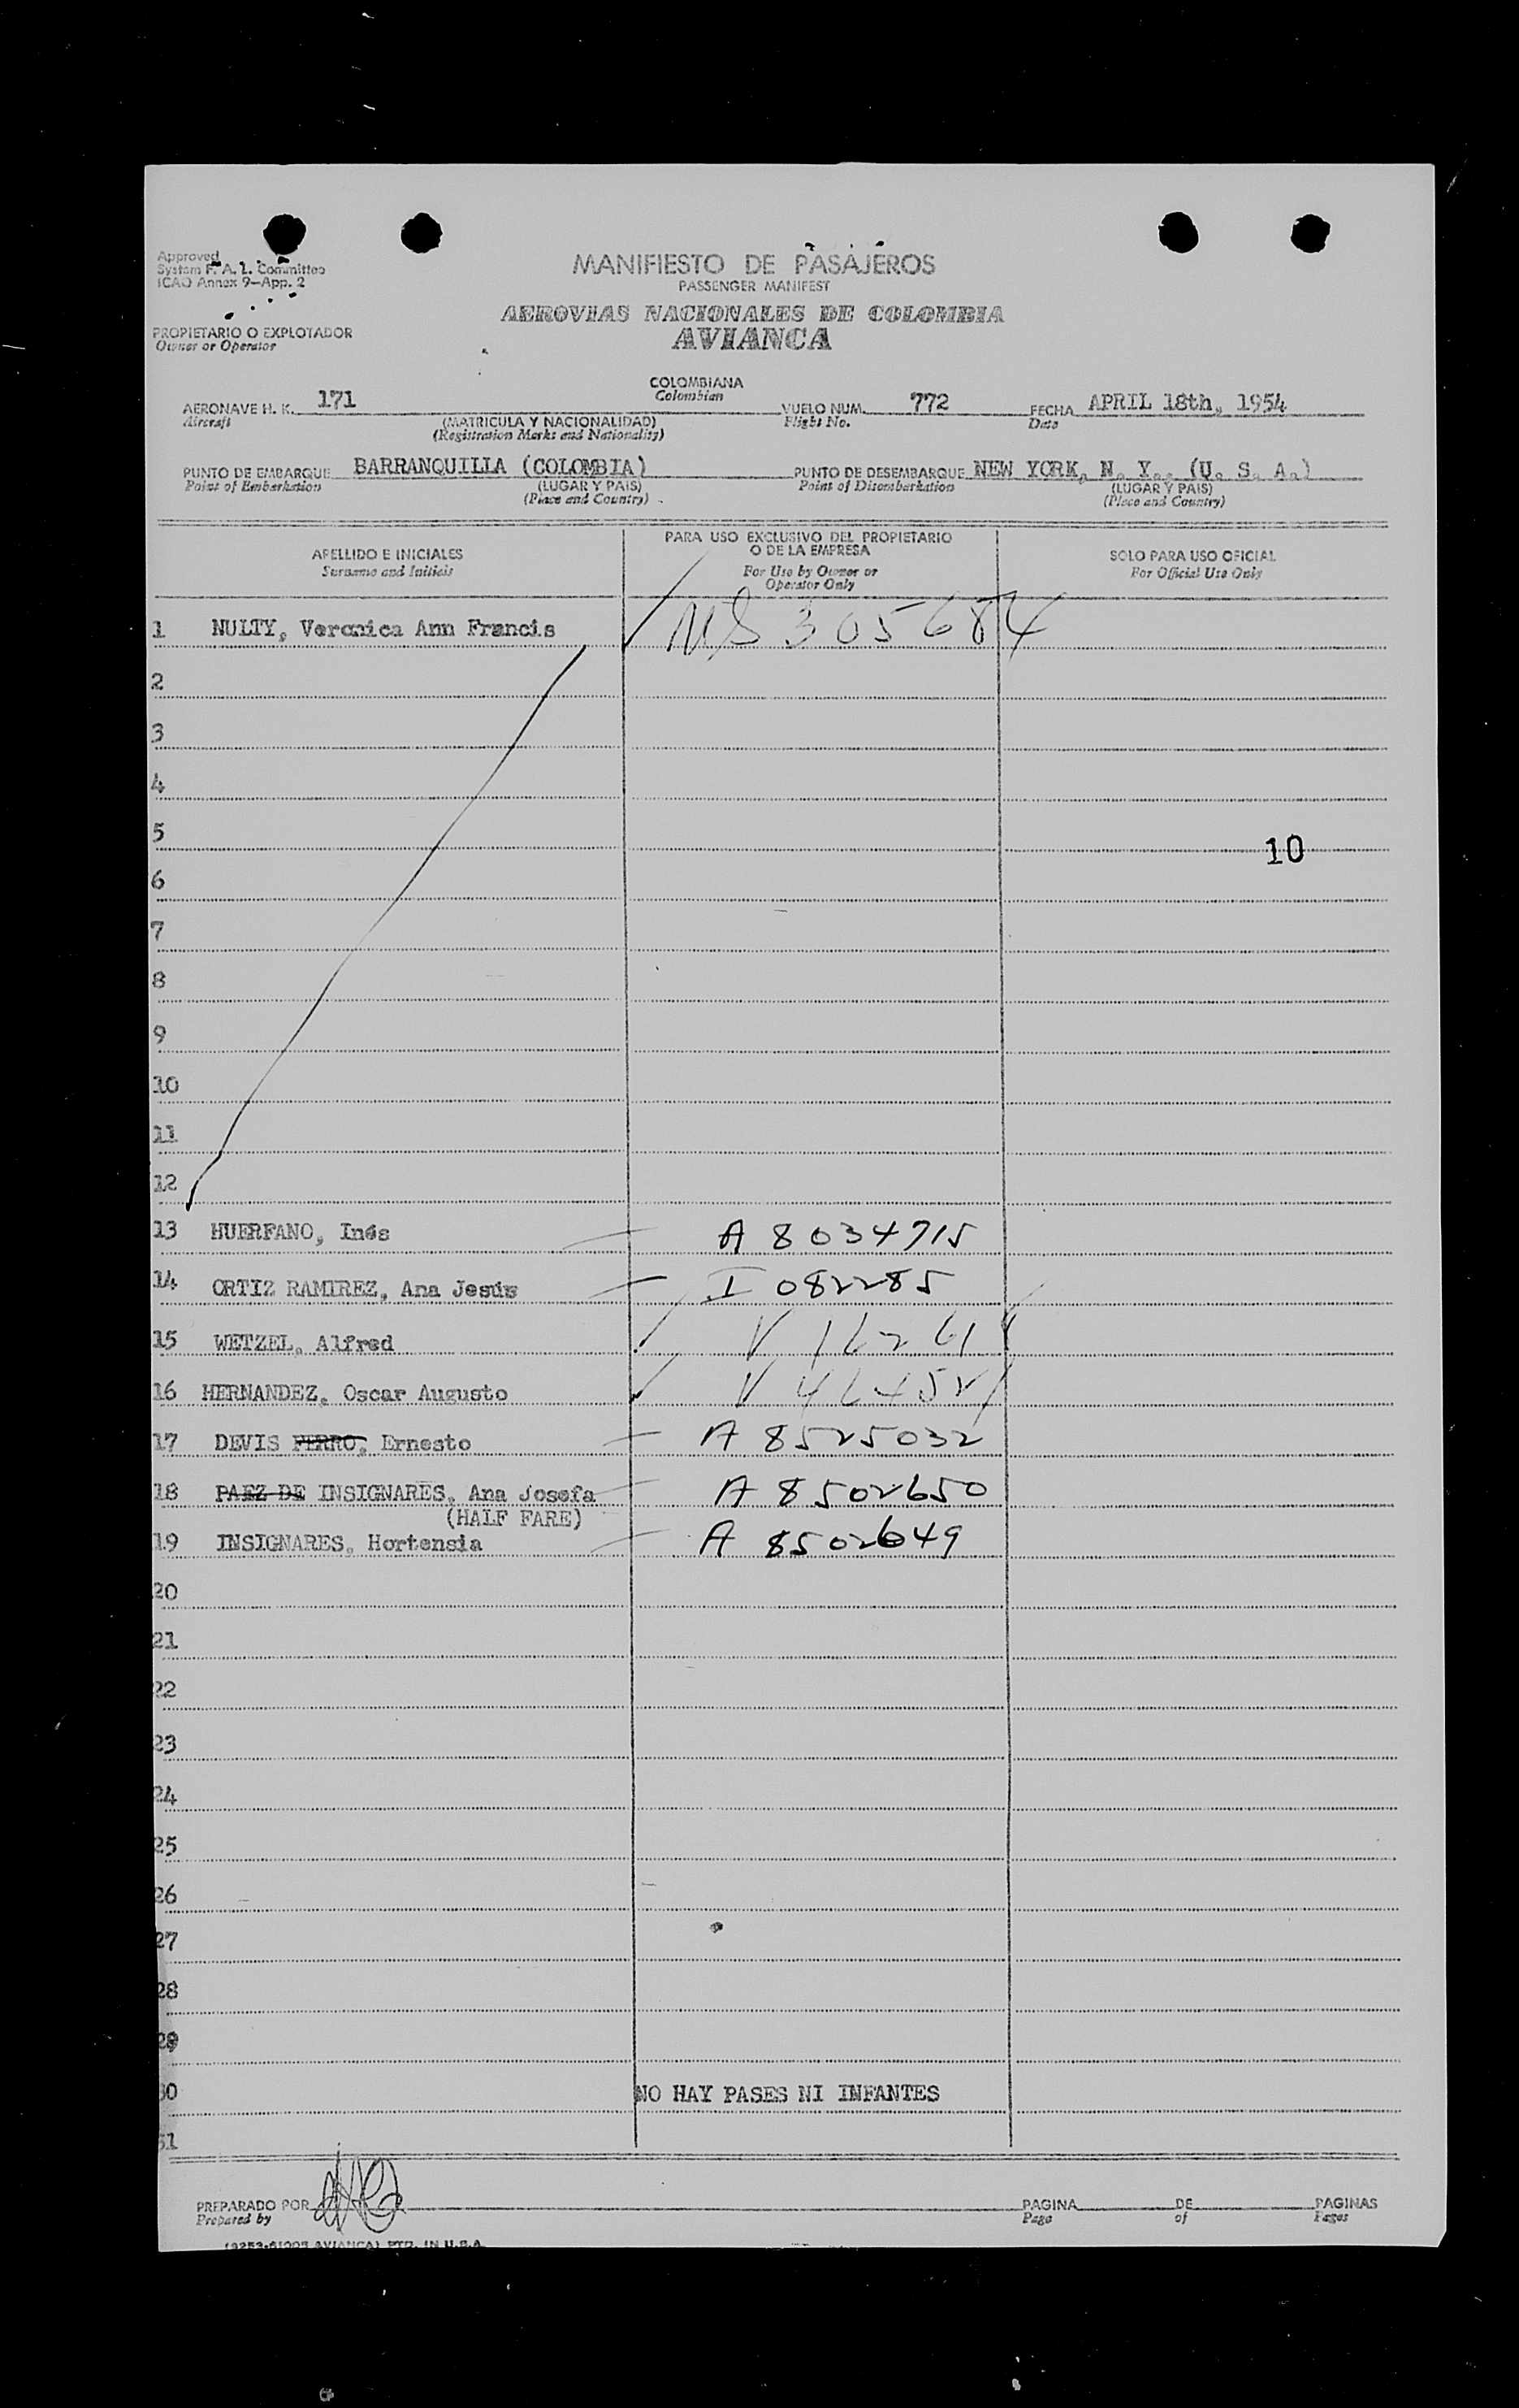 Approved
System F. A. L. Committee
ICAO Annex 9-App. 2
MANIFIESTO DE PASAJEROS
PASSENGER MANIFEST
AEROVIAS NACIONALES DE COLOMBIA
AVIANCA
PROPIETARIO O EXPLOTADOR
Owner or Operator
COLOMBIANA
Colombian
AERONAVE H. K. 171 VUELO NUM. 772 FECHA APRIL 18th, 1954
Aircraft (MATRICULA Y NACIONALIDAD) Flight No. Date
(Registration Marks and Nationality)
PUNTO DE EMBARQUE BARRANQUILLA (COLOMBIA) PUNTO DE DESEMBARQUE NEW YORK, N. Y., (U. S. A.)
Point of Embarkation (LUGAR Y PAIS) Point of Disembarkation (LUGAR Y PAIS)
(Place and Country) (Place and Country)
APELLIDO E INICIALES PARA USO EXCLUSIVO DEL PROPIETARIO O DE LA EMPRESA SOLO PARA USO OFICIAL
Surname and Initials For Use by Owner or Operator Only For Official Use Only
1 NULTY, Veronica Ann Francis 305684
2
3
4
5
10
6
7
8
9
10
11
12
13 HUERFANO, Inés A 8034715
14 ORTIZ RAMIREZ, Ana Jesús I 082285
15 WETZEL, Alfred V
16 HERNANDEZ, Oscar Augusto V
17 DEVIS FERRO, Ernesto A 8525032
18 PAEZ DE INSIGNARES, Ana Josefa A 8502650
(HALF FARE)
19 INSIGNARES, Hortensia A 8502649
20
21
22
23
24
25
26
27
28
29
30 NO HAY PASES NI INFANTES
31
PREPARADO POR PAGINA DE PAGINAS
Prepared by Page of Pages
AVIANCA) PTD. IN U.S.A.